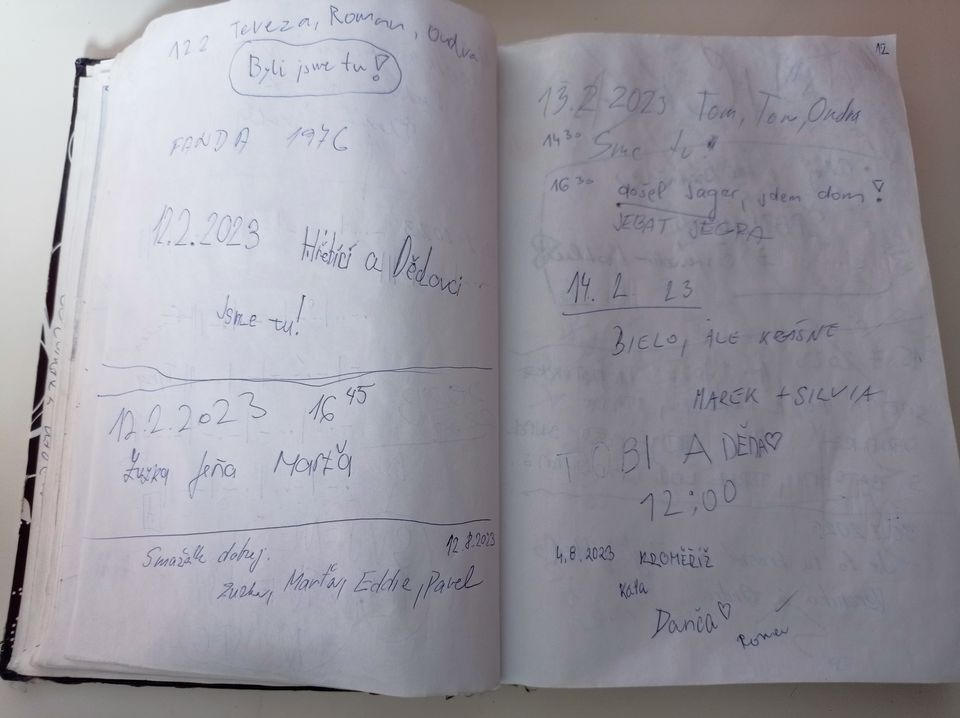 12 2 Tereza, Roman, Ondra
Byli jsme tu!
FANDA 1976
12.2.2023 Hřebíčí a Dědovci
Jsme tu!
12.2.2023 16 45
Zuzka Jeňa Marťa
Smažák dobrej. 12.8.2023
Zuzka, Marťa, Eddie, Pavel
12
13.2 2023 Tom, Tom, Ondra
14 30 Sme tu!
16 30 došel Jager, jdem dom!
JEBAT JEGRA
14. 2 23
BIELO, ALE KRÁSNE
MAREK + SILVIA
TOBI A DĚDA♡
12:00
4.8.2023 KROMĚŘÍŽ
Kata
Danča♡
Roman